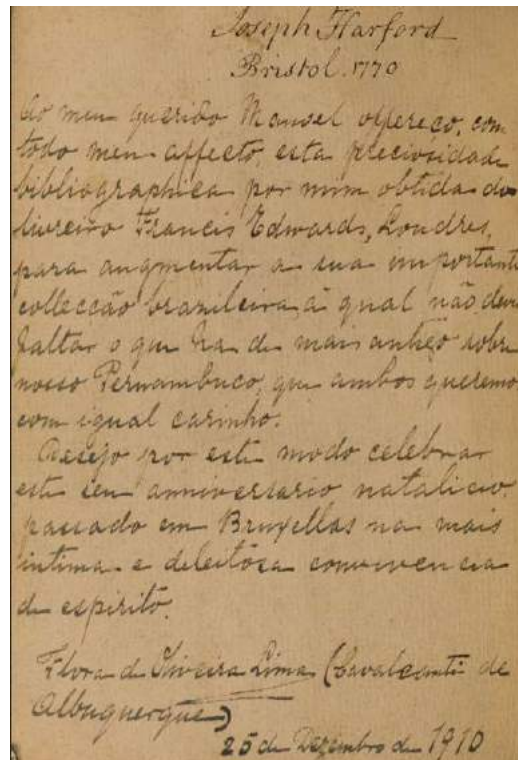 Joseph Harford
Bristol. 1770
Ao meu querido Manoel offereço, com
todo meu affecto, esta preciosidade
bibliographica por mim obtida do
livreiro Francis Edwards, Londres,
para augmentar a sua importante
collecção brazileira, á qual não deve
faltar o que ha de mais antigo sobre
nosso Pernambuco, que ambos queremo
com igual carinho.
Desejo por este modo celebrar
este seu anniversario natalicio,
passado em Bruxellas na mais
intima e deleitosa convivencia
de espirito.
Flora de Oliveira Lima (Cavalcanti de
Albuquerque)
25 de Dezembro de 1910